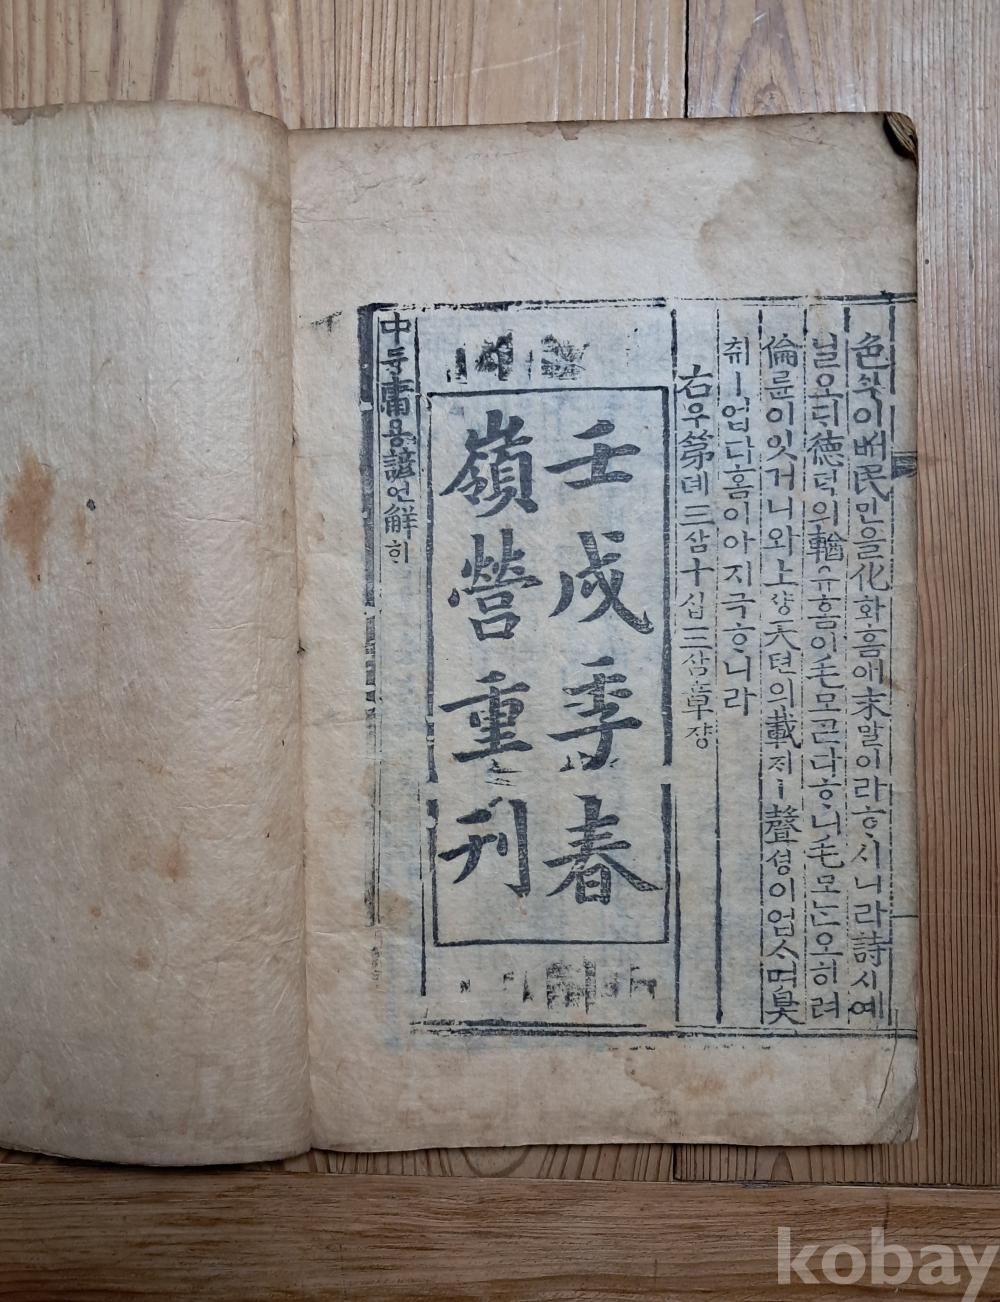 色ᄉᆡᆨ이百ᄇᆡᆨ民민을化화홈애末말이라ᄒᆞ시니라詩시예
닐오ᄃᆡ德덕의輶유홈이毛모ᄀᆞᆮ다ᄒᆞ니毛모ᄂᆞᆫ오히려
倫륜이잇거니와上샹天텬의載ᄌᆡㅣ聲셩이업스며臭
취ㅣ업다홈이아지극ᄒᆞ니라
右우第뎨三삼十십三삼章쟝
壬戌季春
嶺營重刊
中듕庸용諺언解ᄒᆡ
kobay